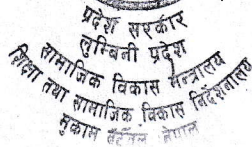 प्रदेश सरकार
लुम्बिनी प्रदेश
सामाजिक विकास मन्त्रालय
शिक्षा तथा सामाजिक विकास निर्देशनालय
मुकाम बुटवल नेपाल